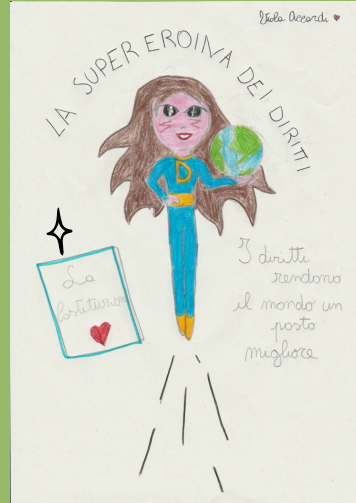 Viola Accardi
LA SUPER EROINA DEI DIRITTI
D
La
Costituzione
I diritti
rendono
il mondo un
posto
migliore